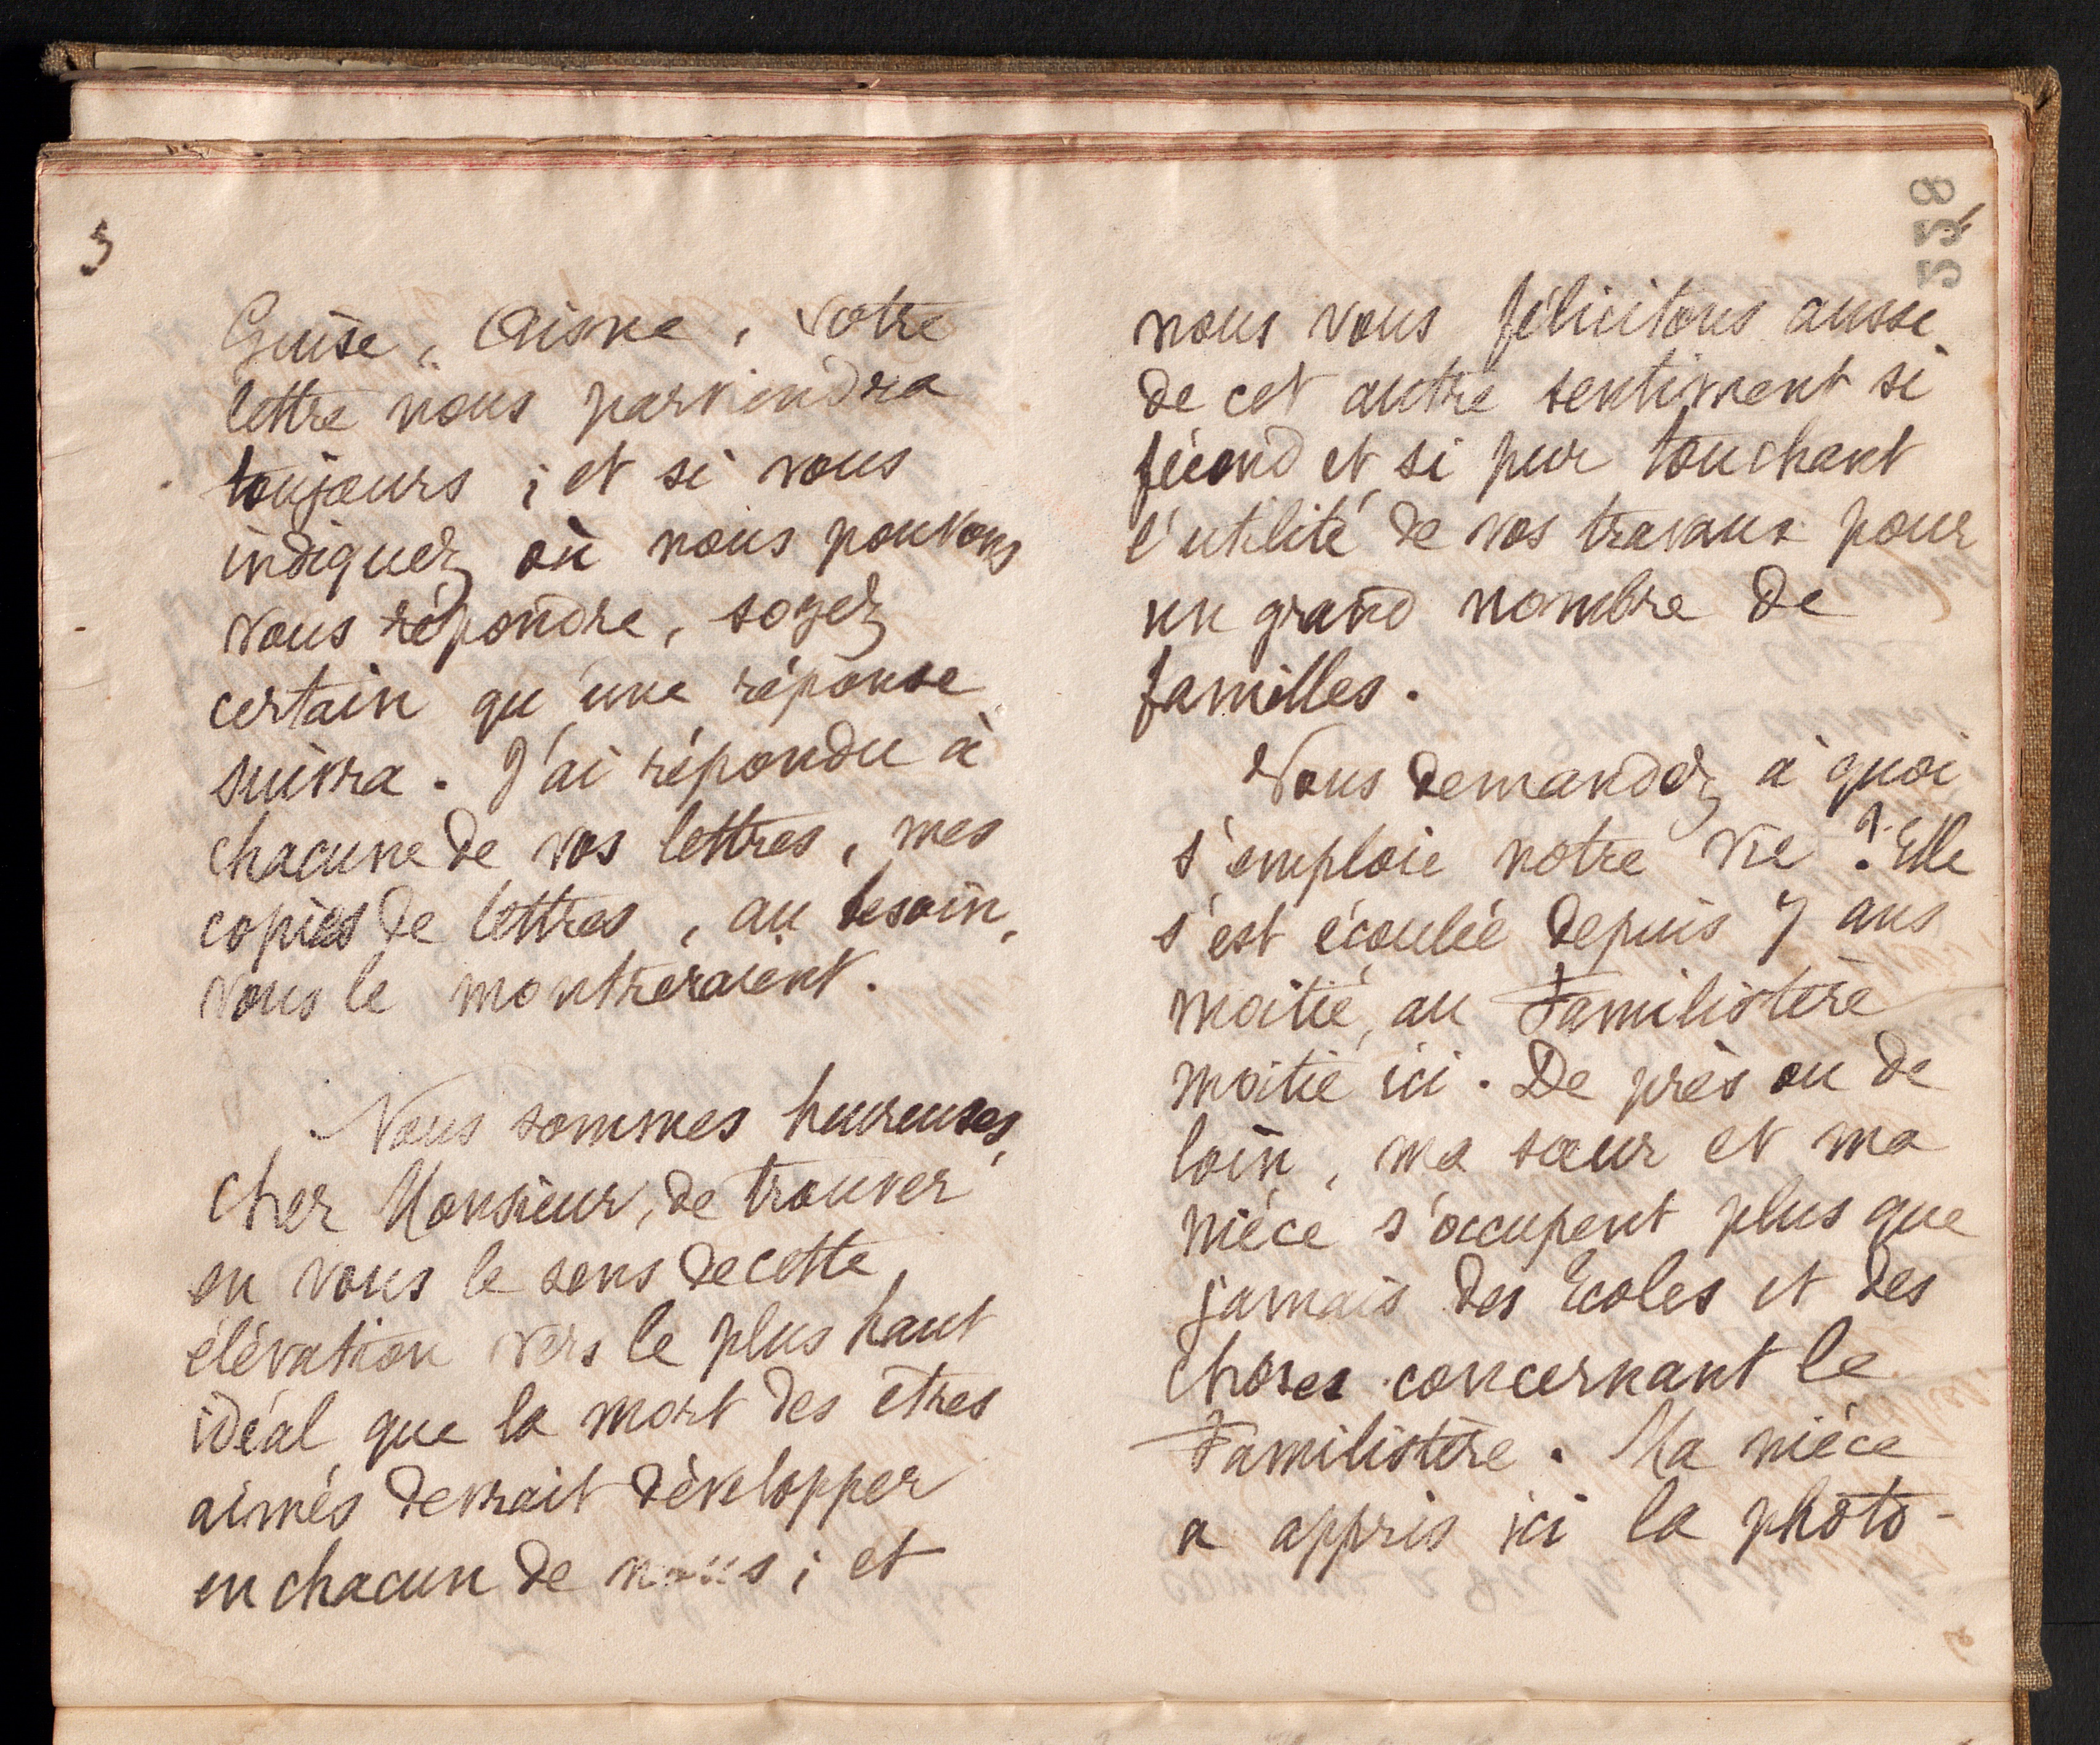 3
Guise, Aisne, votre
lettre nous parviendra
toujours ; et si vous
indiquez où nous pouvons
vous répondre, soyez
certain qu'une réponse
suivra. J'ai répondu à
chacune de vos lettres, mes
copies de lettres, au besoin,
vous le montreraient.
Nous sommes heureuses,
cher Monsieur, de trouver
en vous le sens de cette
élévation vers le plus haut
idéal que la mort des êtres
aimés devrait développer
en chacun de nous ; et
338
nous vous félicitons aussi
de cet autre sentiment si
fécond et si pur touchant
l'utilité de vos travaux pour
un grand nombre de
familles.
Vous demandez à quoi
s'emploie notre vie ? Elle
s'est écoulée depuis 7 ans
moitié au Familistère
moitié ici. De près ou de
loin, ma sœur et ma
nièce s'occupent plus que
jamais des Ecoles et des
choses concernant le
Familistère. Ma nièce
a appris ici la photo-